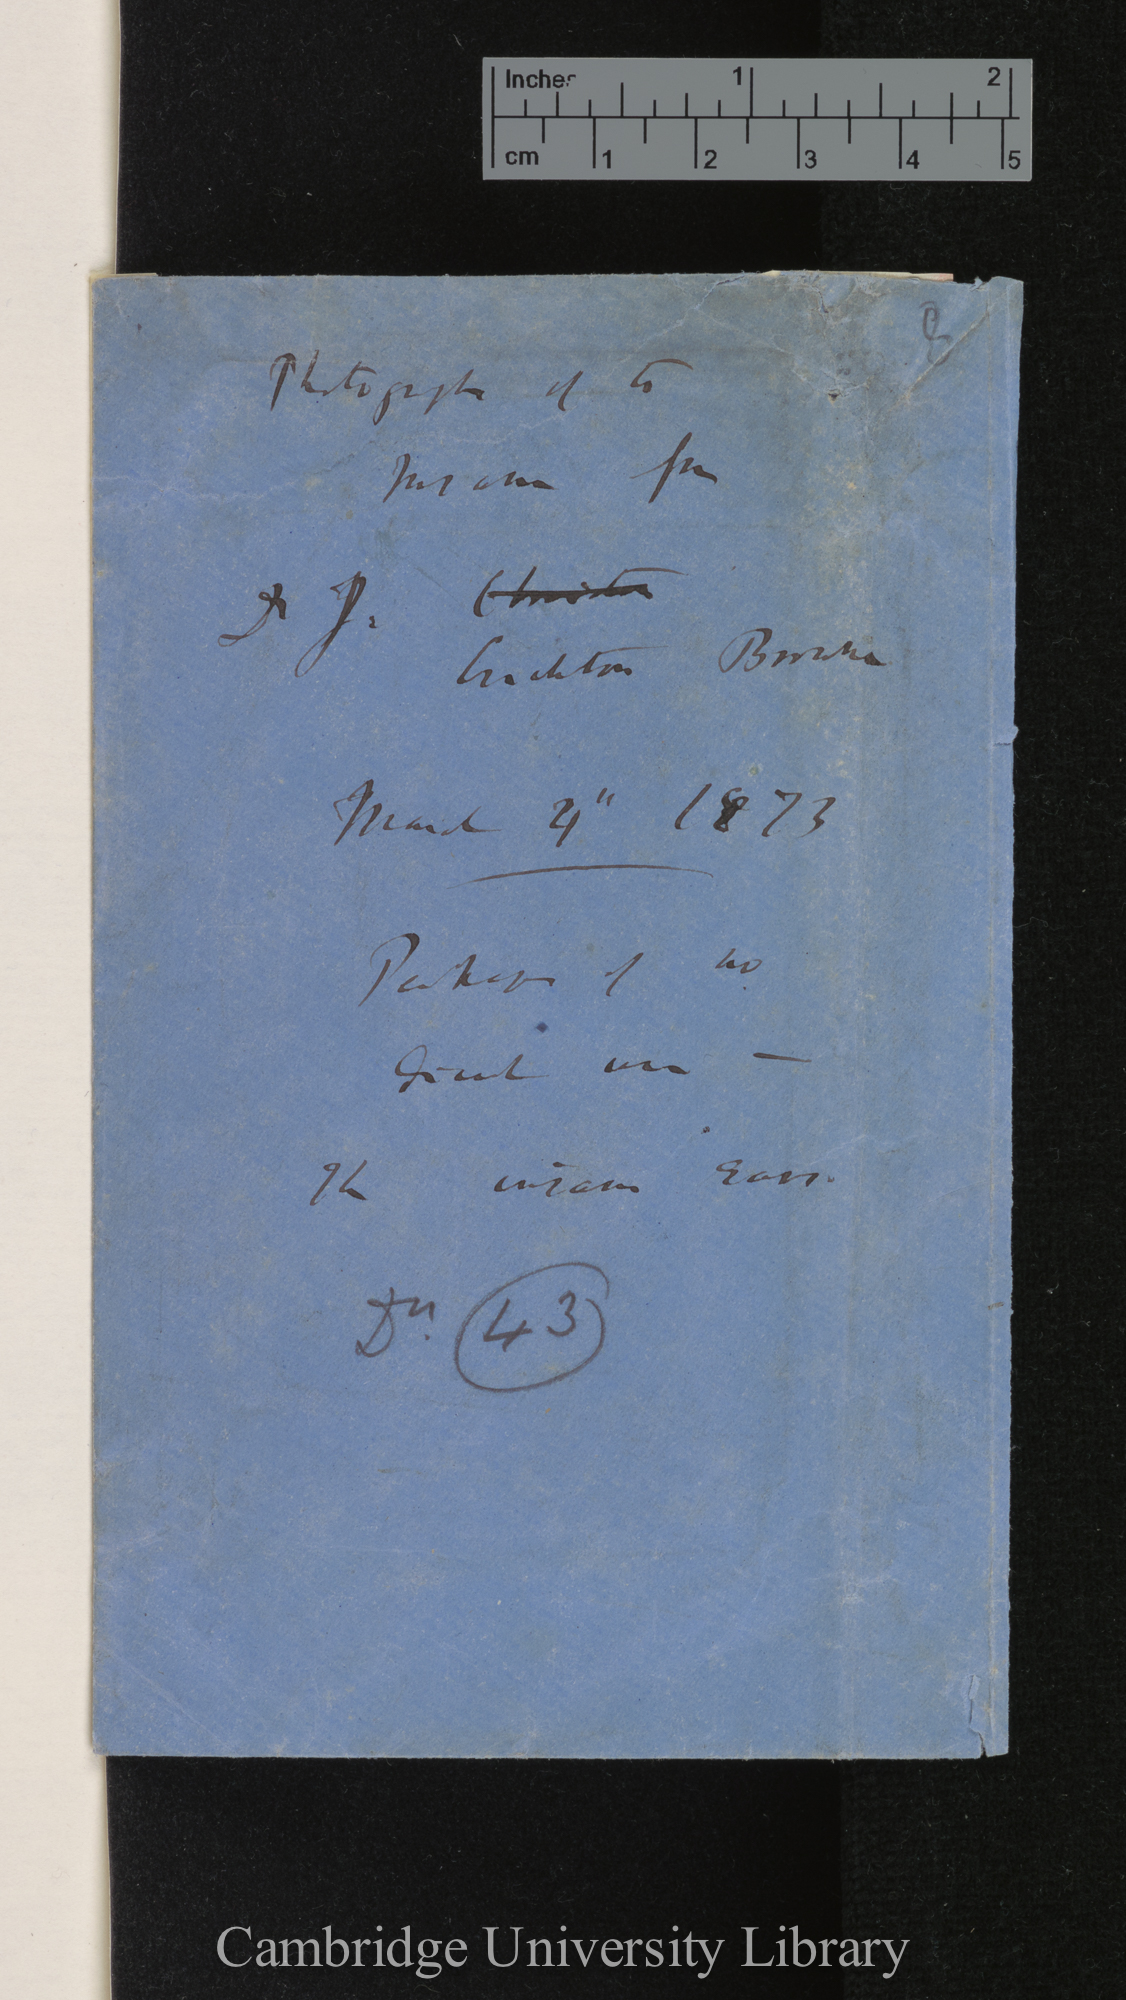 Inches 1 2
cm 1 2 3 4 5
Photographs of the
Insane from
Dr J.
Crichton Browne
March 4" 1873
Perhaps of no
great use —
The insane ears.
43
Cambridge University Library